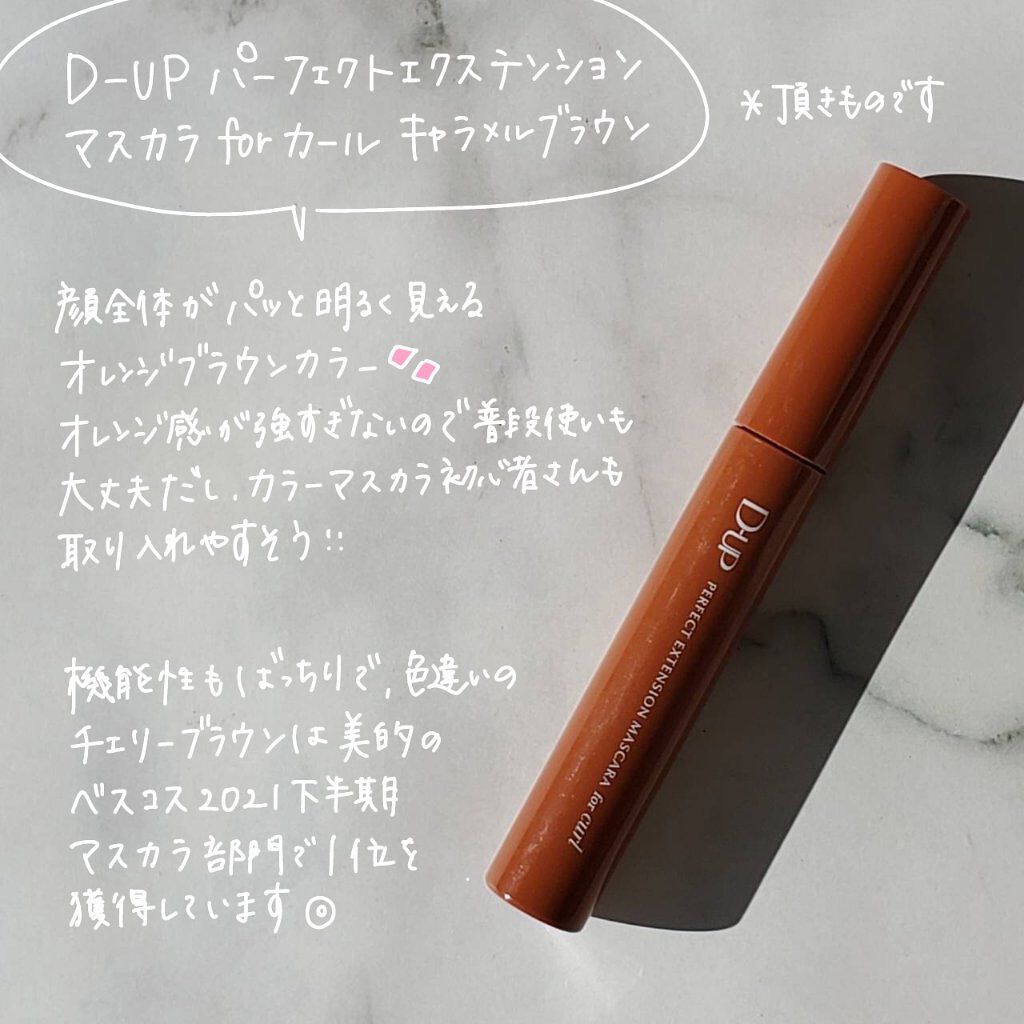 D-UP パーフェクトエクステンション
マスカラ for カール キャラメルブラウン
*頂きものです
顔全体がパッと明るく見える
オレンジブラウンカラー
オレンジ感が強すぎないので普段使いも
大丈夫だし、カラーマスカラ初心者さんも
取り入れやすそう!!
機能性もばっちりで、色違いの
チェリーブラウンは美的の
ベスコス2021下半期
マスカラ部門で1位を
獲得しています◎
D-UP PERFECT EXTENSION MASCARA for curl